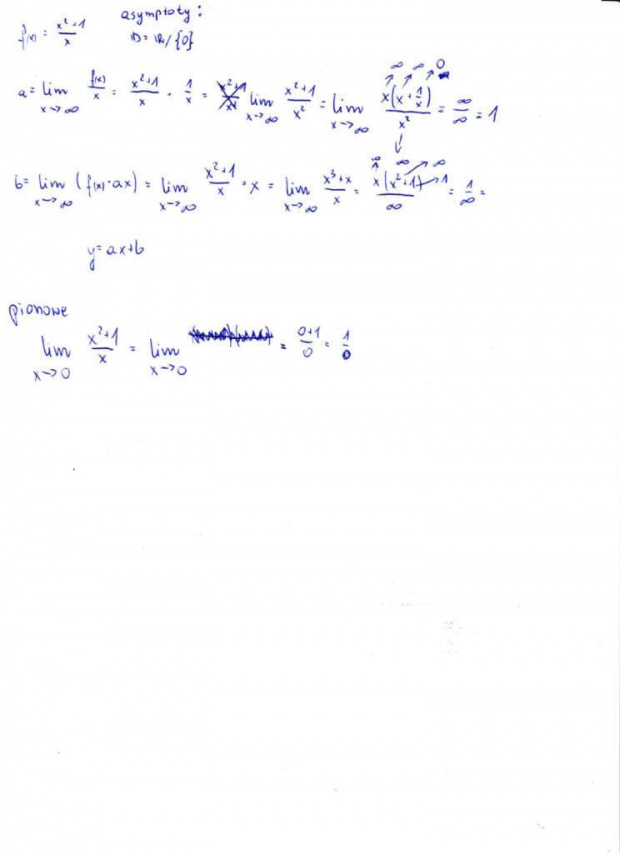 f(x) = x²+1/x asymptoty:
D = ℝ/{0}
a = lim x→∞ f(x)/x = x²+1/x · 1/x = lim x→∞ x²+1/x² = lim x→∞ x(x+1/x)/x² = ∞/∞ = 1
∞ ∞ 0
b = lim x→∞ (f(x)-ax) = lim x→∞ x²+1/x · x = lim x→∞ x³+x/x = x(x²+1)/∞ = 1/∞ =
y = ax+b
pionowe
lim x→0 x²+1/x = lim x→0 = 0+1/0 = 1/0